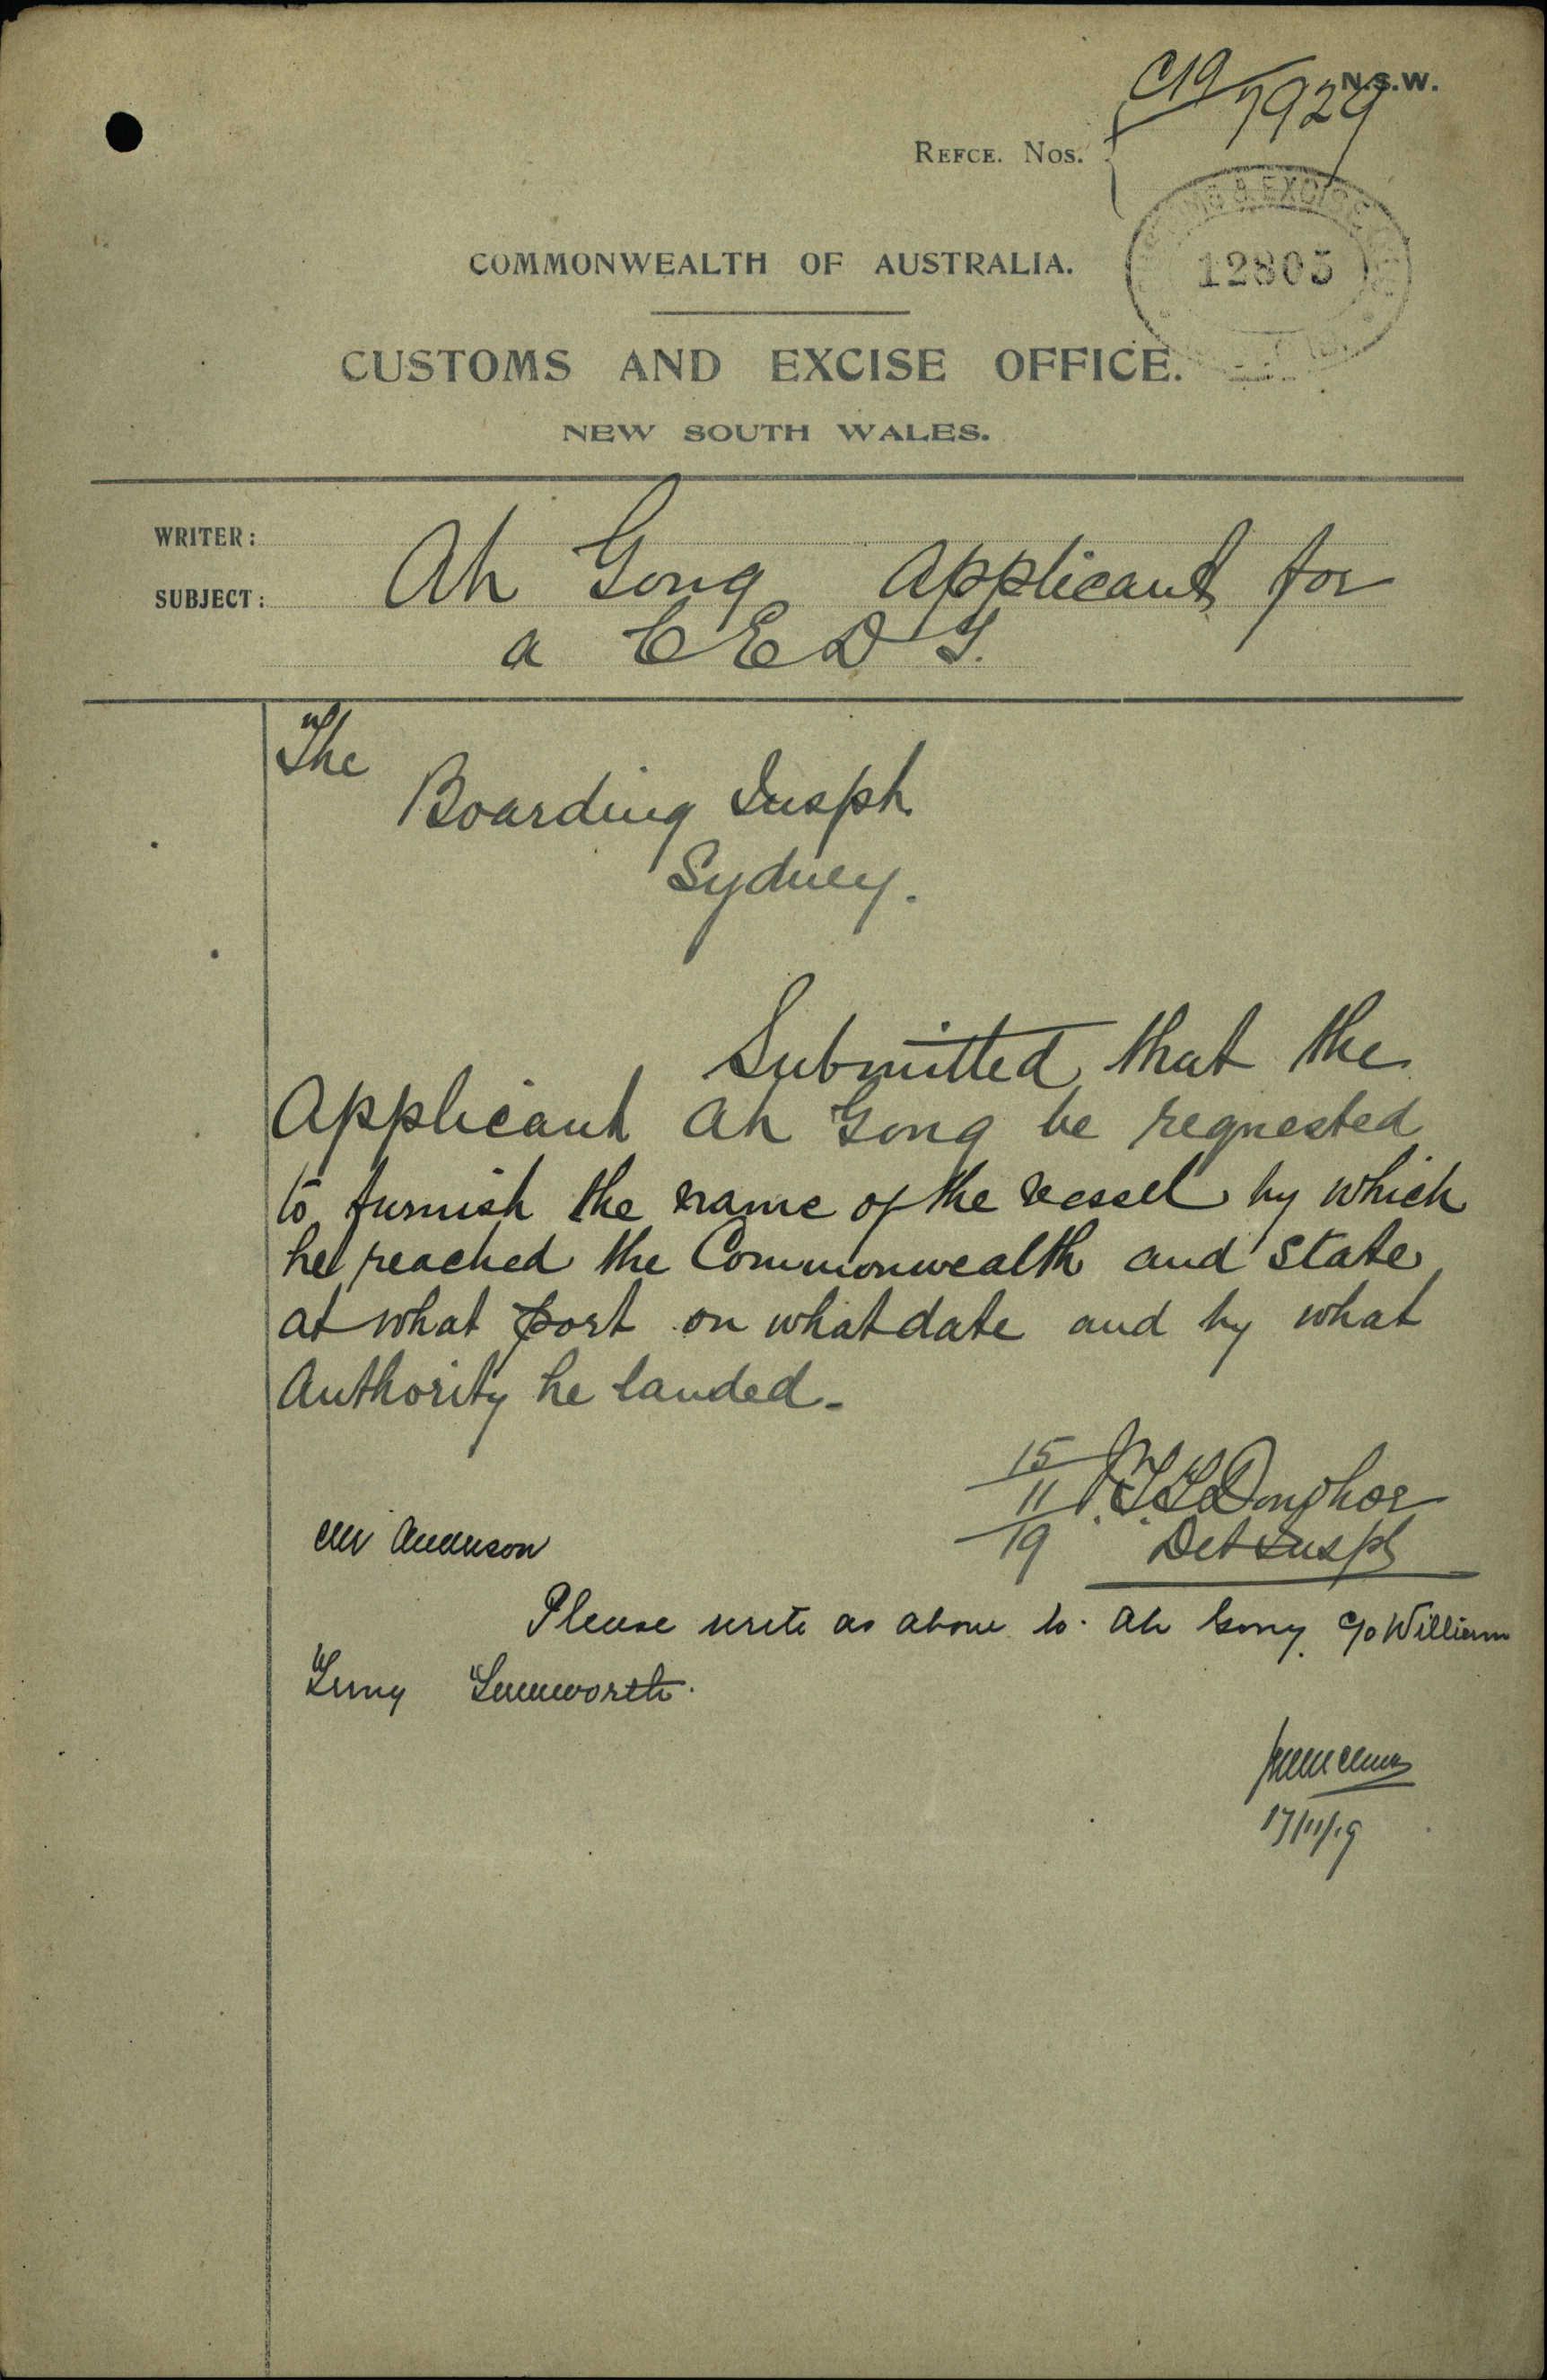 C19/7929
N.S.W.
REFCE. NOS.
CUSTOMS & EXCISE
12805
COMMONWEALTH OF AUSTRALIA.
CUSTOMS AND EXCISE OFFICE.
NEW SOUTH WALES.
WRITER:
SUBJECT:
Ah Gong Applicant for
a C E D T.
The
Boarding Inspt.
Sydney.
Submitted that the
Applicant Ah Gong be requested
to furnish the name of the vessel by which
he reached the Commonwealth and State
at what port on what date and by what
Authority he landed.
15/11/19
Donohoe
Det Inspt
Mr Anderson
Please write as above to Ah Gong c/o William